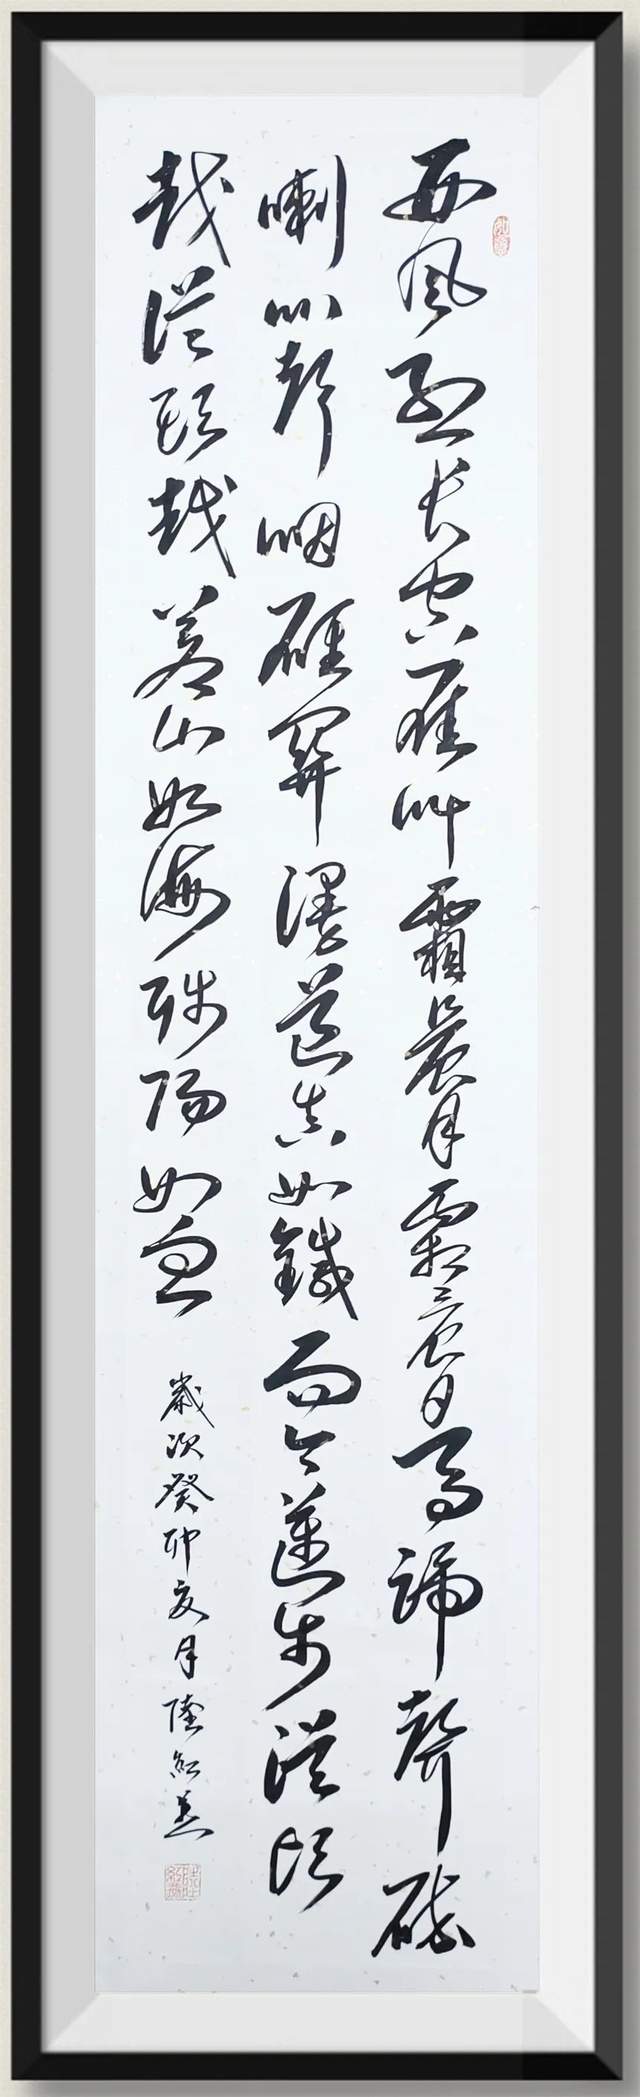 西風烈長空雁叫霜晨月霜晨月馬蹄聲碎
喇叭聲咽雄關漫道真如鐵而今邁步從頭
越從頭越蒼山如海殘陽如血
歲次癸卯亥月陸